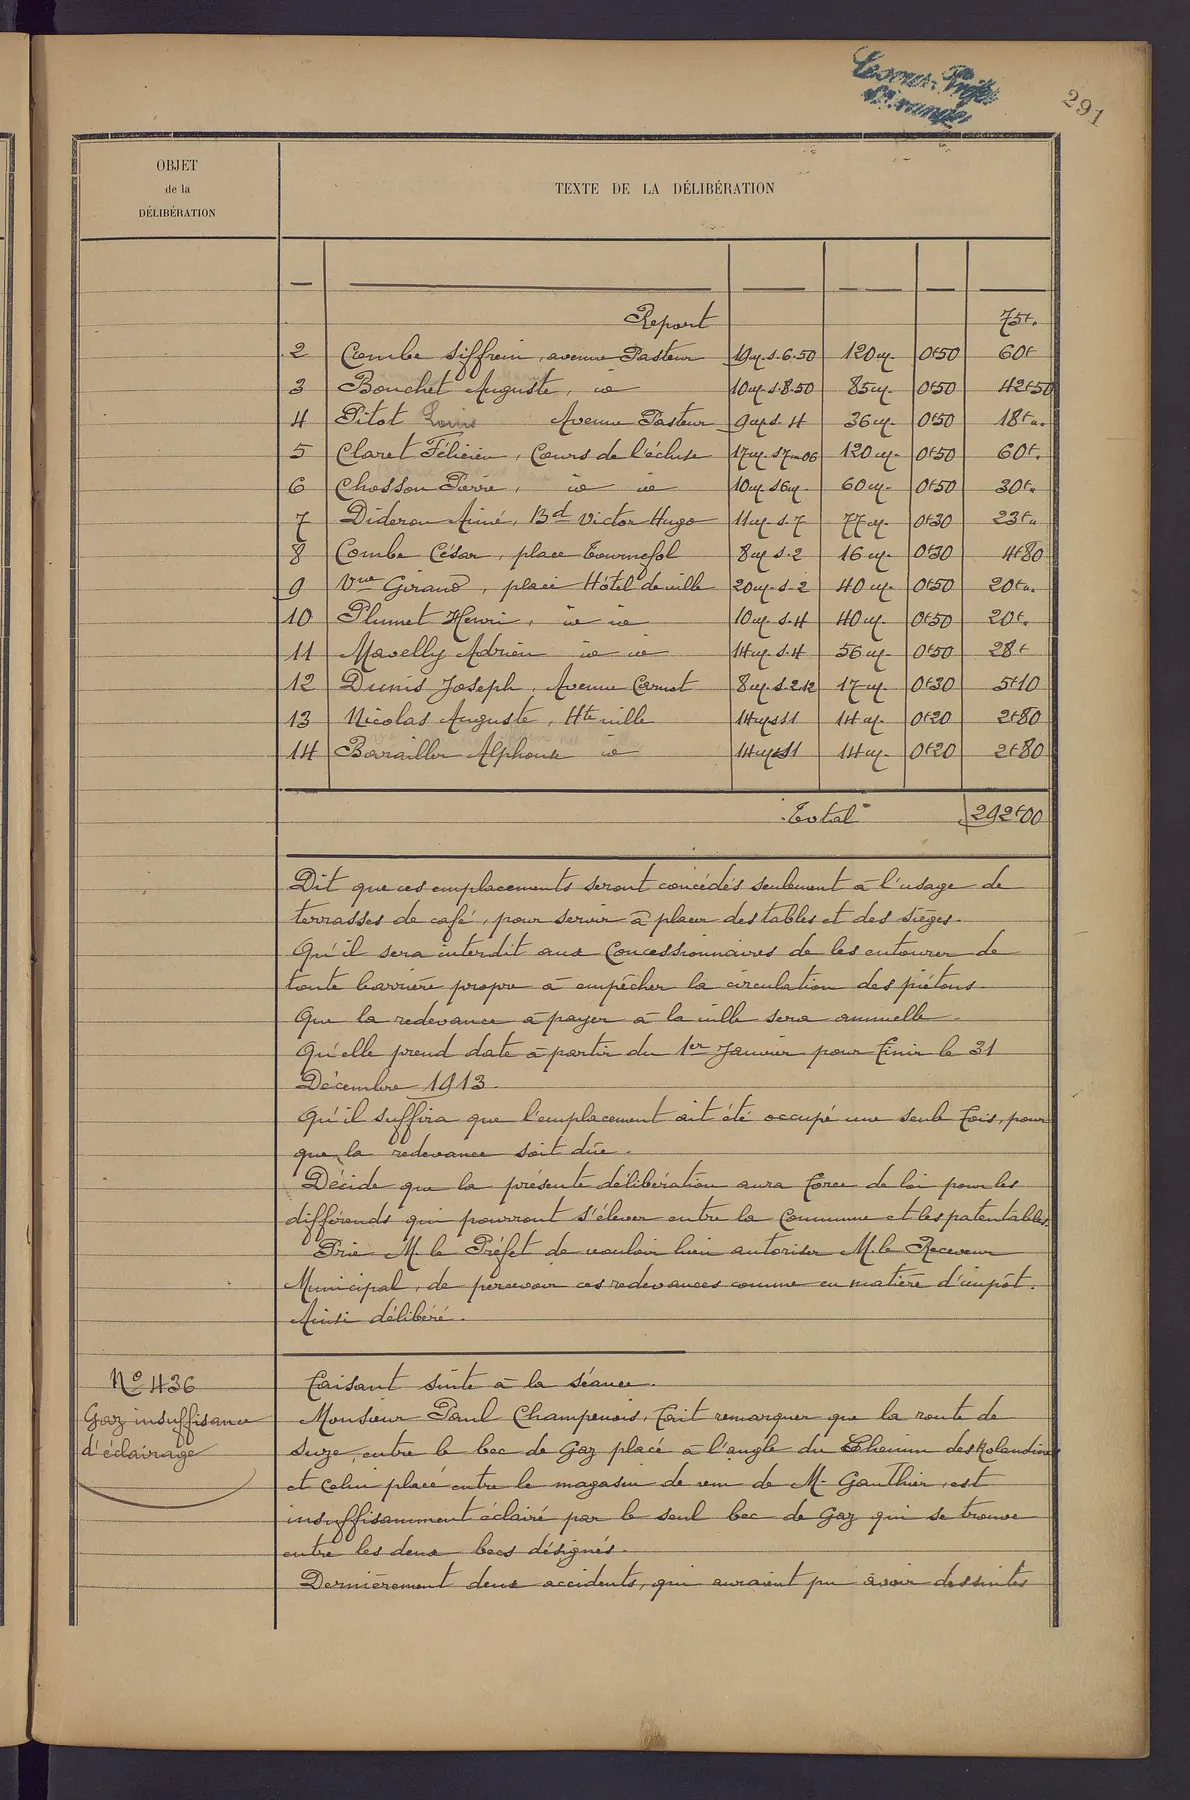 291
OBJET
de la
DÉLIBÉRATION
TEXTE DE LA DÉLIBÉRATION
Report 75f.
2 Combe Siffrein, avenue Pasteur 19m. s. 6.50 120m. 0f50 60f
3 Bouchet Auguste, id 10m. s. 8.50 85m. 0f50 42f50
4 Pitot Louis Avenue Pasteur 9m. s. 4 36m. 0f50 18f.
5 Claret Félicien, Cours de l'écluse 17m. s 7m06 120m. 0f50 60f.
6 Chosson Pierre, id id 10m. s 6m. 60m. 0f50 30f.
7 Dideron Aimé, Bd Victor Hugo 11m. s. 7 77m. 0f30 23f.
8 Combe César, place Tournefol 8m s. 2 16m. 0f30 4f80
9 Vve Giraud, place Hôtel de ville 20m. s. 2 40m. 0f50 20f.
10 Plumet Henri, id id 10m. s. 4 40m. 0f50 20f.
11 Mavelly Adrien id id 14m. s. 4 56m. 0f50 28f
12 Dunis Joseph, Avenue Carnot 8m. s. 2.12 17m. 0f30 5f10
13 Nicolas Auguste, Hte ville 14m s 1 14m. 0f20 2f80
14 Barailler Alphonse id 14m s 1 14m. 0f20 2f80
Total 292f00
Dit que ces emplacements seront concédés seulement à l'usage de
terrasses de café, pour servir à placer des tables et des sièges.
Qu'il sera interdit aux Concessionnaires de les entourer de
toute barrière propre à empêcher la circulation des piétons.
Que la redevance à payer à la ville sera annuelle.
Qu'elle prend date à partir du 1er Janvier pour finir le 31
Décembre 1913.
Qu'il suffira que l'emplacement ait été occupé une seule fois, pour
que la redevance soit dûe.
Décide que la présente délibération aura force de loi pour les
différends qui pourront s'élever entre la Commune et les patentables.
Prie M. le Préfet de vouloir bien autoriser M. le Receveur
Municipal, de percevoir ces redevances comme en matière d'impôt.
Ainsi délibéré.
No 436
Gaz insuffisance
d'éclairage
Faisant suite à la séance.
Monsieur Paul Champenois, fait remarquer que la route de
Suze, entre le bec de Gaz placé à l'angle du Chemin des Rolandins
et celui placé entre le magasin de vin de M. Gauthier, est
insuffisamment éclairé par le seul bec de Gaz qui se trouve
entre les deux becs désignés.
Dernièrement deux accidents, qui auraient pu avoir des suites